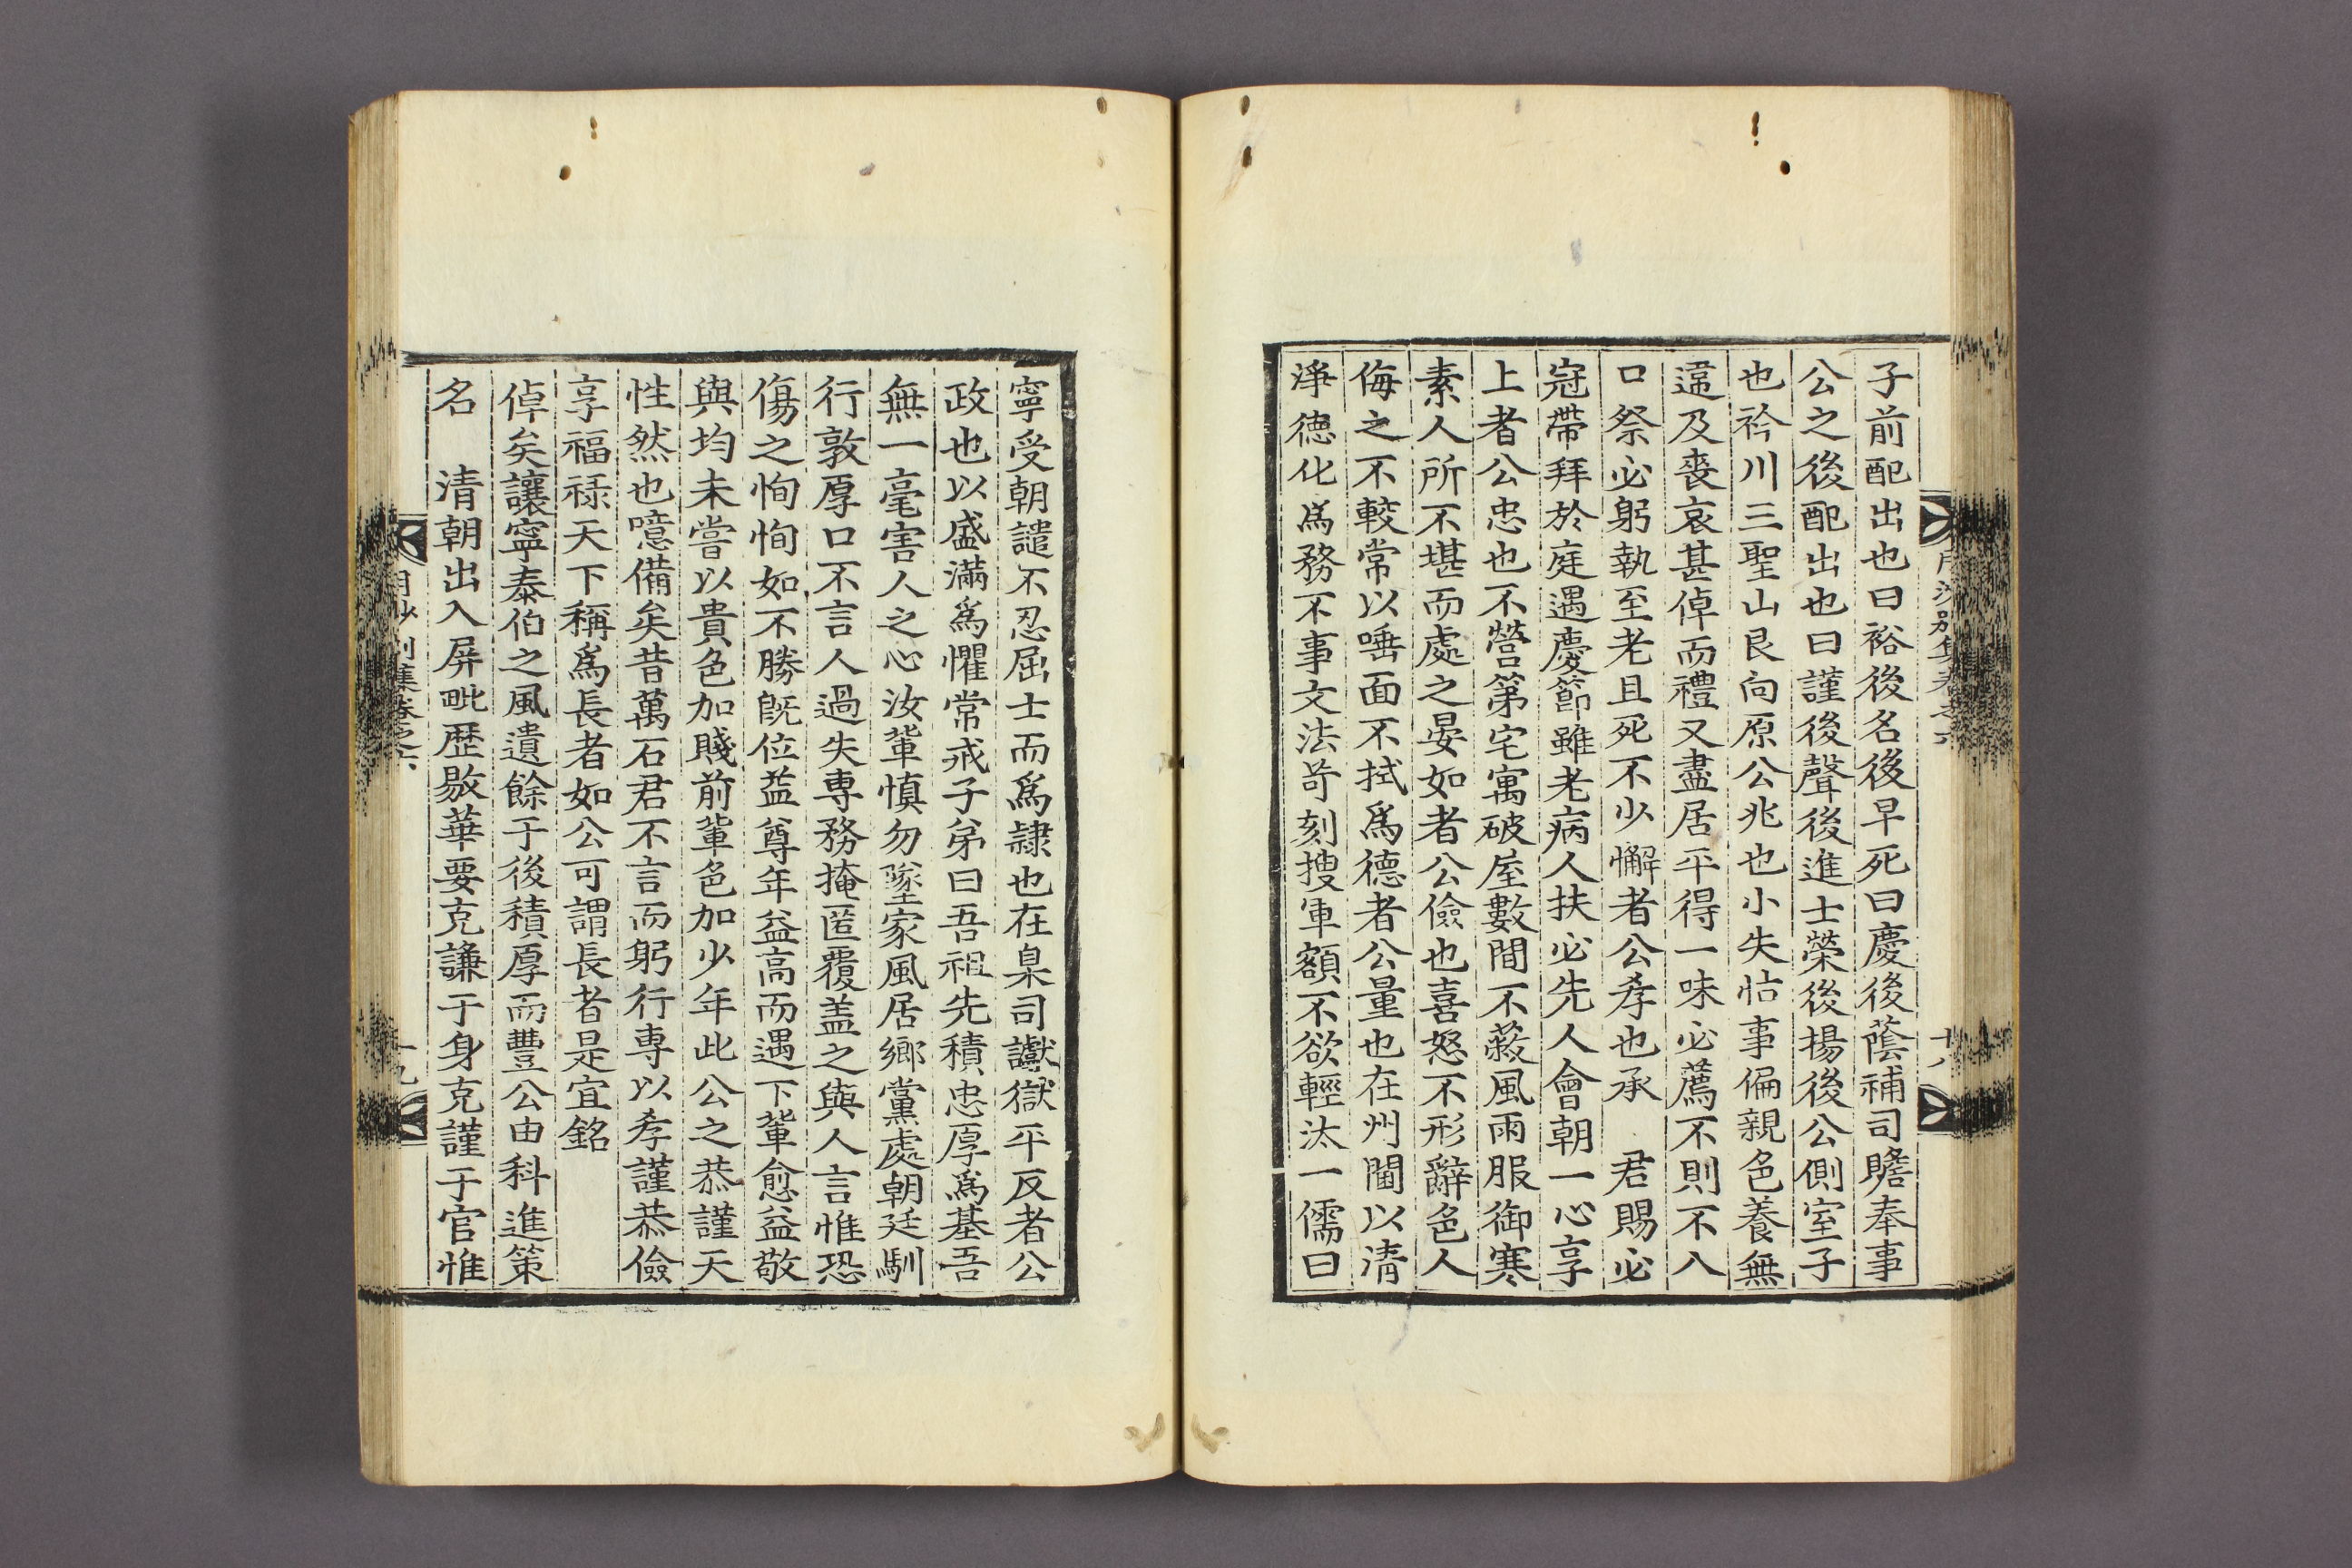 子前配出也曰裕後名後早死曰慶後蔭補司贍奉事
公之後配出也曰謹後聲後進士榮後揚後公側室子
也衿川三聖山艮向原公兆也小失怙事偏親色養無
違及喪哀甚倬而禮又盡居平得一味必薦不則不入
口祭必躬執至老且死不少懈者公孝也承 君賜必
冠帶拜於庭遇慶節雖老病人扶必先人會朝一心享
上者公忠也不營第宅寓破屋數間不蔽風雨服御寒
素人所不堪而處之晏如者公儉也喜怒不形辭色人
侮之不較常以唾面不拭爲德者公量也在州閫以淸
淨德化爲務不事文法苛刻搜軍額不欲輕汰一儒曰
寧受朝譴不忍屈士而爲隷也在臬司讞獄平反者公
政也以盛滿爲懼常戒子弟曰吾祖先積忠厚爲基吾
無一毫害人之心汝輩愼勿墜家風居鄕黨處朝廷馴
行敦厚口不言人過失專務掩匿覆盖之與人言惟恐
傷之恂恂如不勝旣位益尊年益高而遇下輩愈益敬
與均未嘗以貴色加賤前輩色加少年此公之恭謹天
性然也噫備矣昔萬石君不言而躬行專以孝謹恭儉
享福祿天下稱爲長者如公可謂長者是宜銘
倬矣讓寧泰伯之風遺餘于後積厚而豐公由科進策
名 清朝出入屛毗歷敭華要克謙于身克謹于官惟
月沙別集卷之六
十八
月沙別集卷之六
十九